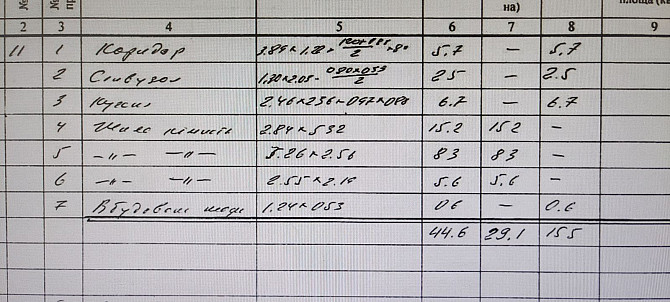 №
№ пр
на)
площа (кв
2 3 4 5 6 7 8 9
11 1 Коридор 3.89 × 1.20 + × 80 5.7 — 5.7
2 Санвузол 1.70 × 2.05 - 2.5 — 2.5
3 Кухня 2.46 × 2.56 - 0.97 × 0.80 6.7 — 6.7
4 Жила кімната 2.84 × 5.32 15.2 15.2 —
5 —〃— —〃— 3.26 × 2.56 8.3 8.3 —
6 —〃— —〃— 2.55 × 2.19 5.6 5.6 —
7 Вбудована шафа 1.24 × 0.53 0.6 — 0.6
44.6 29.1 15.5